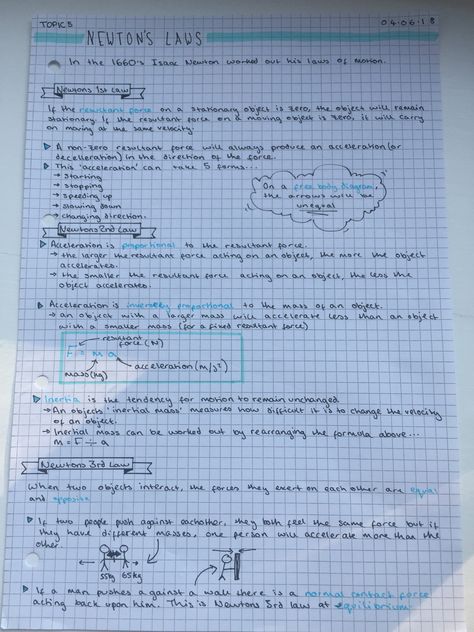 TOPIC 5
04.06.18
NEWTON'S LAWS
In the 1660's Isaac Newton worked out his laws of motion.
Newtons 1st Law
If the resultant force on a stationary object is zero, the object will remain
stationary. If the resultant force on a moving object is zero, it will carry
on moving at the same velocity.
A non-zero resultant force will always produce an acceleration (or
decelleration) in the direction of the force.
This 'acceleration' can take 5 forms...
→ starting
→ stopping
→ speeding up
→ slowing down
→ changing direction.
On a free body diagram,
the arrows will be
unequal
Newtons 2nd Law
Acceleration is proportional to the resultant force.
→ the larger the resultant force acting on an object, the more the object
accelerates.
→ the smaller the resultant force acting on an object, the less the
object accelerates.
Acceleration is inversely proportional to the mass of an object.
→ an object with a larger mass will accelerate less than an object
with a smaller mass (for a fixed resultant force)
resultant
force (N)
F = m a
mass(kg)
acceleration (m/s²)
Inertia is the tendency for motion to remain unchanged
→ An objects 'inertial mass' measures how difficult it is to change the velocity
of an object.
→ Inertial mass can be worked out by rearranging the formula above...
m = F ÷ a
Newtons 3rd Law
When two objects interact, the forces they exert on each other are equal
and opposite
If two people push against eachother, they both feel the same force but if
they have different masses, one person will accelerate more than the
other.
55kg 65kg
If a man pushes against a wall there is a normal contact force
acting back upon him. This is Newtons 3rd law at equilibrium.